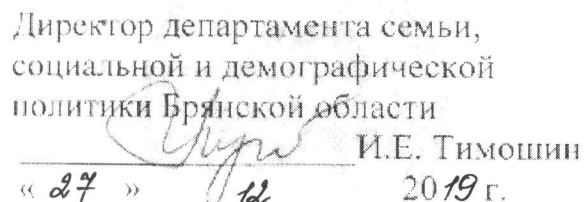 Директор департамента семьи,
социальной и демографической
политики Брянской области
И.Е. Тимошин
« 27 » 12 2019 г.